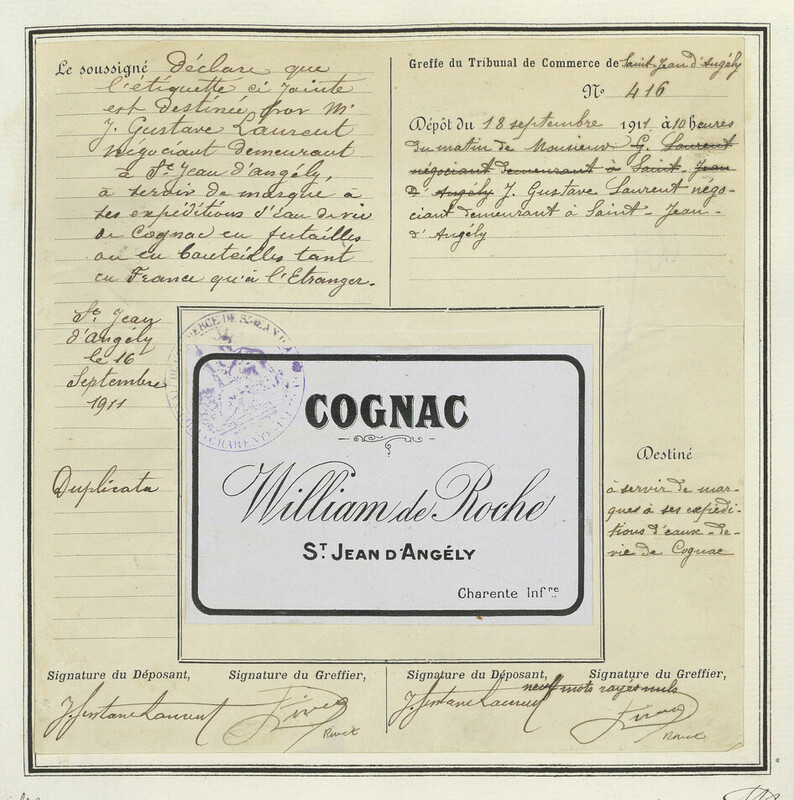 Le soussigné Déclare que
l'étiquette ci Jointe
est Destinée par Mr
J. Gustave Laurent
négociant Demeurant
à St Jean d'angély,
à servir de marque à
ses expéditions d'Eau de vie
de Cognac en futailles
ou en bouteilles tant
en France qu'à l'Etranger.
St Jean
d'Angély
le 16
Septembre
1911
Duplicata
Greffe du Tribunal de Commerce de Saint-Jean d'Angély
No 416
Dépôt du 18 septembre 1911 à 10 heures
du matin de Monsieur G. Laurent
négociant demeurant à Saint-Jean
d'Angély J. Gustave Laurent négo-
ciant demeurant à Saint-Jean-
d'Angély
COGNAC
William de Roche
ST JEAN D'ANGÉLY
Charente Infre
Destiné
à servir de mar-
ques à ses expédi-
tions d'eaux-de-
vie de Cognac
Signature du Déposant, Signature du Greffier,
J. Gustave Laurent
Signature du Déposant, Signature du Greffier,
neuf mots rayés nuls
J. Gustave Laurent